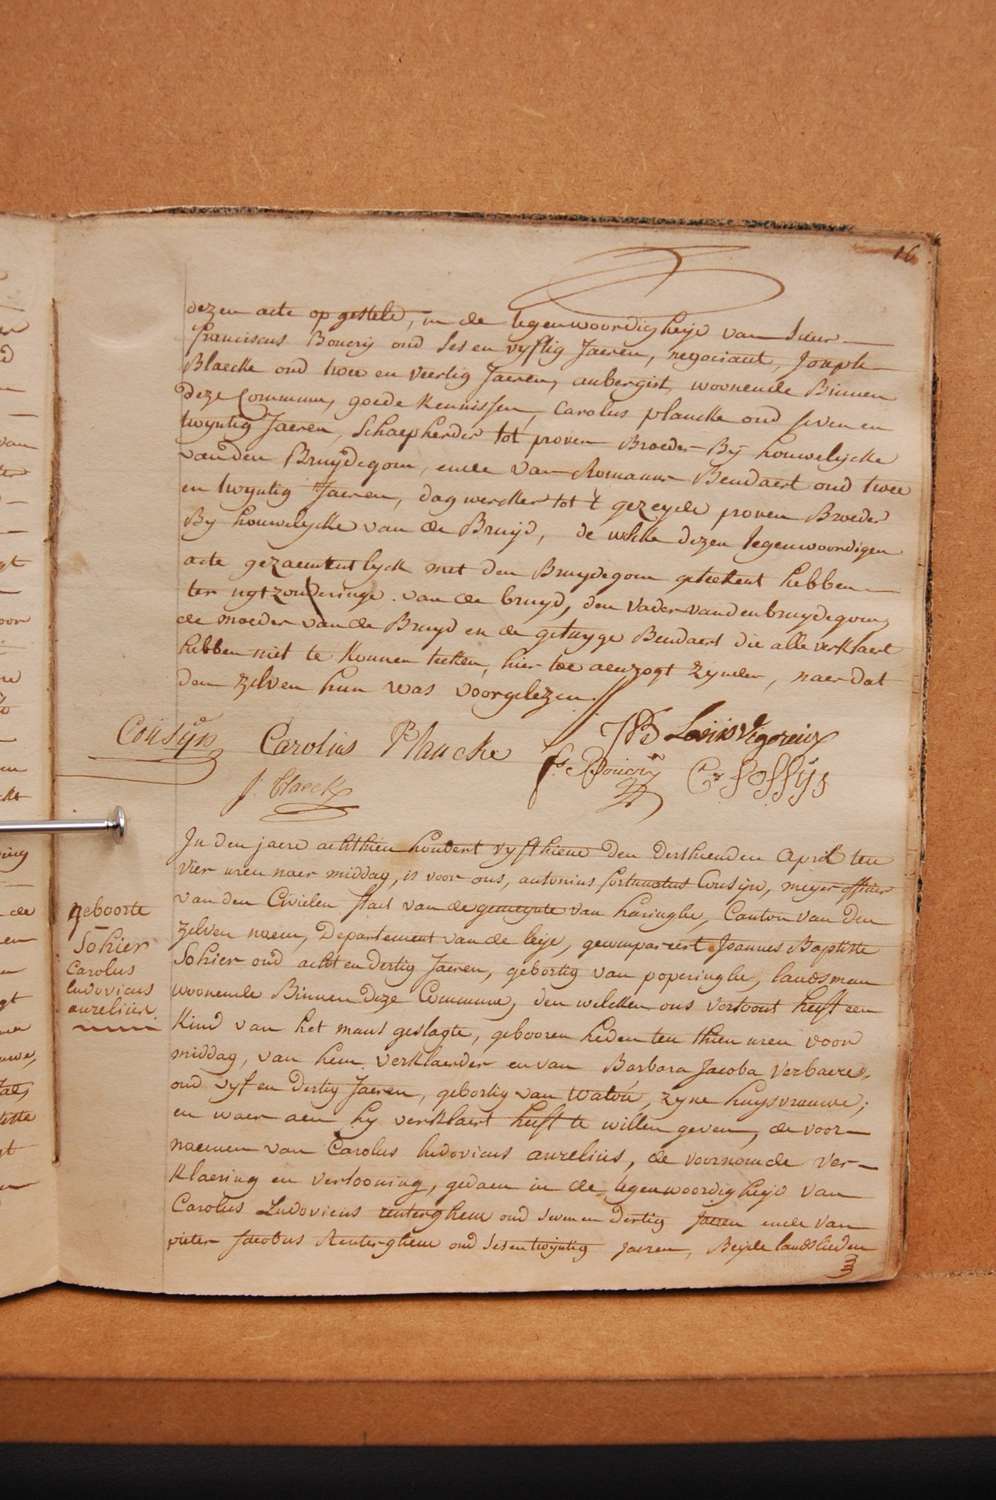 16
dezen acte op gestelt, in de tegenwoordigheyd van sieur
franciscus Boucry oud ses en vyftig Jaeren, negociant, Joseph
Blaecke oud twee en veertig Jaeren, aubergist, woonende Binnen
deze Commune, goede kennissen, Carolus plancke oud seven en
twyntig Jaeren, Schaepherder tot proven Broeder By houwelycke
van den Bruydegom, ende van Romanus Beudaert oud twee
en twyntig Jaeren, dagwercker tot 't gezeyde proven Broeder
By houwelycke van de Bruyd, de welke dezen tegenwoordigen
acte gezaementlyck met den Bruydegom geteekent hebben
ter uytzonderinge van de bruyd, den vader van den bruydegom,
de moeder van de Bruyd en de getuyge Beudaert die alle verklaert
hebben niet te konnen teeken, hier toe aenzogt zynde, naer dat
den zelven hun was voorgelezen
Cousyn Carolus Plancke JB Louis Vigoreux
J. Blaecke fs Boucry
In den jaere achthien hondert vyfthiene den derthienden April ten
vier uren naer middag, is voor ons, antonius fortunatus Cousyn, meyer officier
van den Civielen staet van de gemeynte van haringhe, Canton van den
zelven naem, Departement van de leije, gecompareert Joannes Baptiste
Sohier oud acht en dertig Jaeren, gebortig van poperinghe, landsman
woonende Binnen deze Commune, den welcken ons vertoont heeft een
kind van het mans geslagte, gebooren heden ten thien uren voor
middag, van hem verklaerder en van Barbara Jacoba verbaere,
oud vyf en dertig Jaeren, gebortig van watou, zyne huysvrouwe;
en waer aen hy verklaert heeft te willen geven, de voor
naemen van Carolus ludovicus aurelius, de voornomde ver-
klaering en vertooning, gedaen in de tegenwoordigheyd van
Carolus Ludovicus renterghem oud seven en dertig Jaeren ende van
pieter Jacobus Renterghem oud ses en twyntig Jaeren, Beyde landslieden
geboorte
Sohier
Carolus
ludovicus
aurelius.